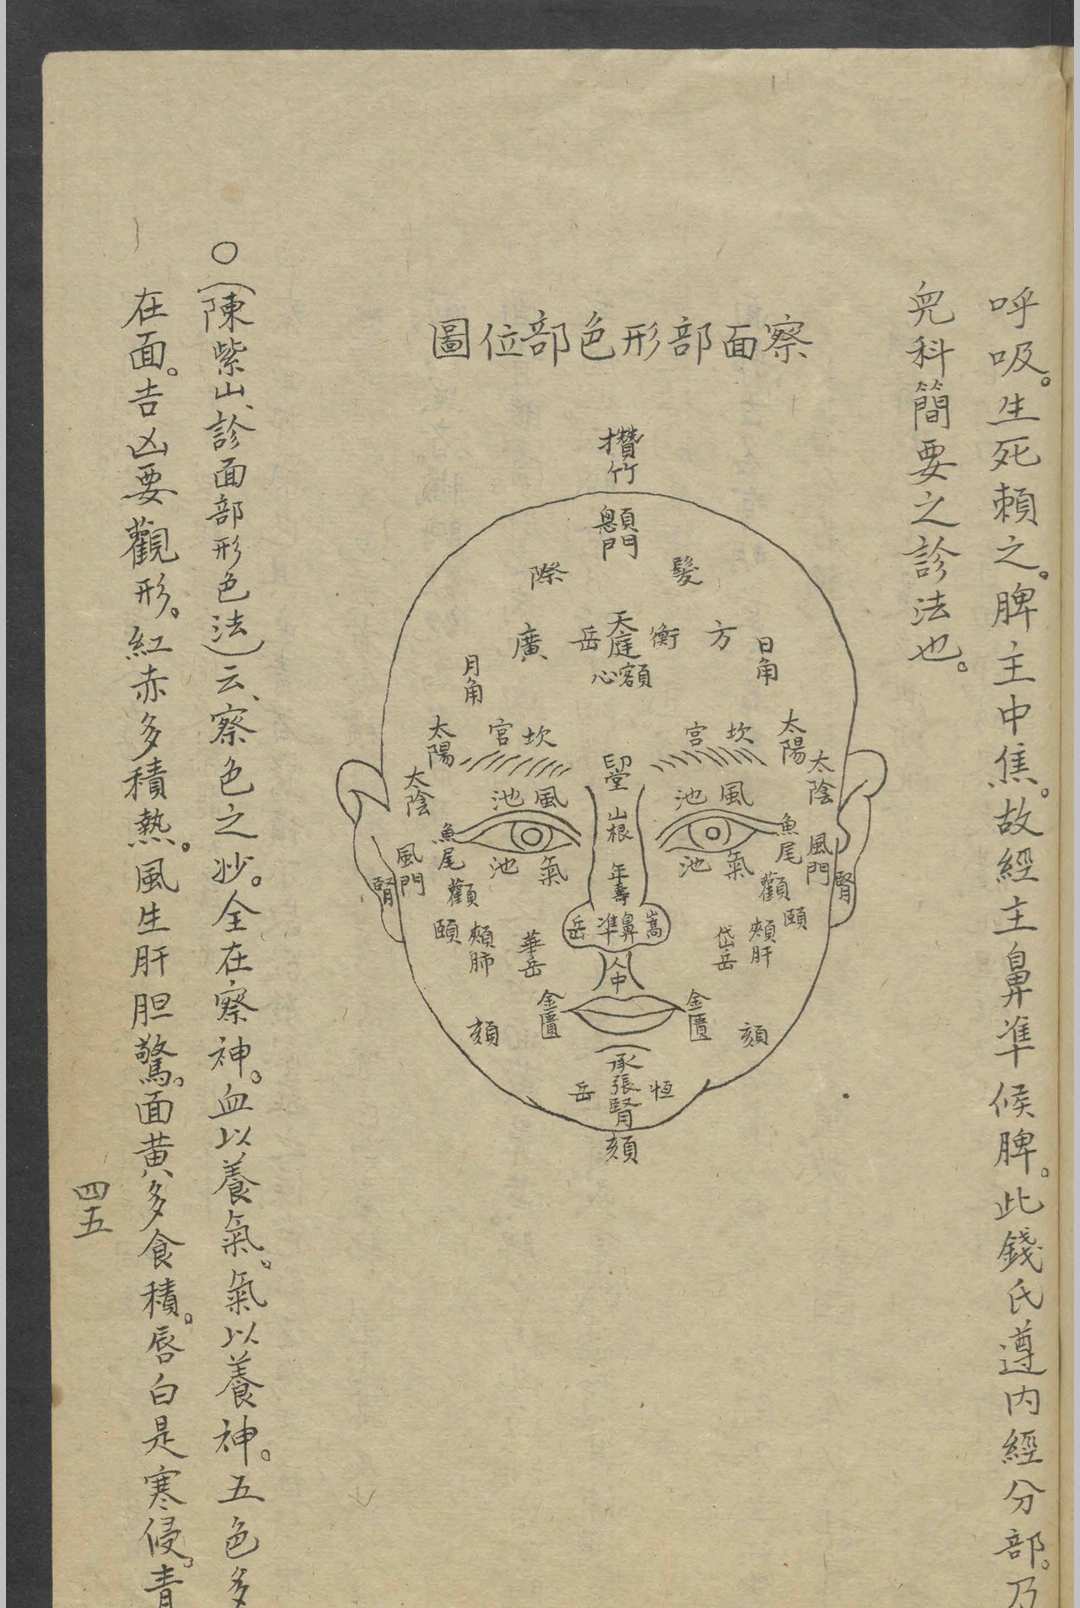 呼吸。生死賴之。脾主中焦。故經主鼻準候脾。此錢氏遵內經分部。乃
兒科簡要之診法也。
察面部形色部位圖
攢竹
顖門
髮際
方衡
天庭
岳
廣
日角
月角
額心
坎宮
坎宮
太陽
太陽
太陰
太陰
印堂
風池
風池
山根
魚尾
魚尾
風門
風門
氣池
氣池
年壽
顴
顴
腎
腎
頤
頤
嵩
鼻準
岳
頰肝
頰肺
岱岳
華岳
人中
金匱
金匱
頦
頦
承張
恒
岳
腎
頦
〇(陳紫山、診面部形色法)云、察色之妙。全在察神。血以養氣。氣以養神。五色多
在面。吉凶要觀形。紅赤多積熱。風生肝胆驚。面黃多食積。唇白是寒侵。青
四五